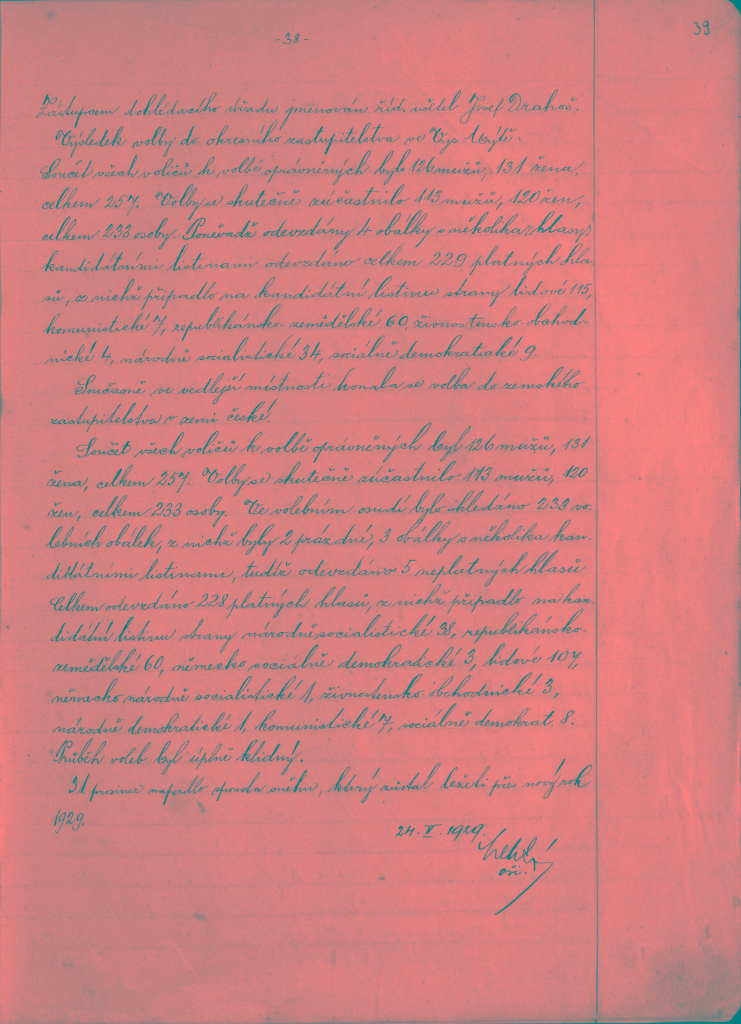 39
-38-
Zástupcem dohlédacího úřadu jmenován říd. učitel Josef Drahoš.
Výsledek volby do okresního zastupitelstva ve Vys. Mýtě.
Součet všech voličů k volbě oprávněných bylo 126 mužů, 131 žena,
celkem 257. Volby se skutečně zúčastnilo 113 mužů, 120 žen,
celkem 233 osoby. Poněvadž odevzdány 4 obálky s několika hlasy,
kandidátními listinami odevzdáno celkem 229 platných hla-
sů, z nichž připadlo na kandidátní listinu strany lidové 115,
komunistické 7, republikánsko-zemědělské 60, živnostensko-obchod-
nické 4, národně socialistické 34, sociálně demokratické 9.
Současně ve vedlejší místnosti konala se volba do zemského
zastupitelstva v zemi české.
Součet všech voličů k volbě oprávněných byl 126 mužů, 131
žena, celkem 257. Volby se skutečně zúčastnilo 113 mužů, 120
žen, celkem 233 osoby. Ve volebním osudí bylo shledáno 233 vo-
lebních obálek, z nichž byly 2 prázdné, 3 obálky s několika kan-
didátními listinami, tudíž odevzdáno 5 neplatných hlasů
Celkem odevzdáno 228 platných hlasů, z nichž připadlo na kan-
didátní listinu strany národně socialistické 38, republikánsko-
zemědělské 60, německo sociálně demokratické 3, lidové 107,
německo národně socialistické 1, živnostensko-obchodnické 3,
národně demokratické 1, komunistické 7, sociálně demokrat. 8.
Průběh voleb byl úplně klidný.
31. prosince napadlo spousta sněhu, který zůstal ležeti přes nový rok
1929.
24. V. 1929.